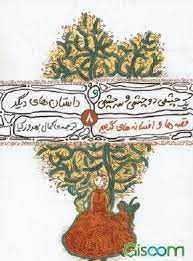 یک چشمی دو چشمی و سه چشمی
و
داستان های دیگر
قصه ها و افسانه های گریم
۸
ترجمه‌ی کمال بهروزکیا
Gisoom
.com